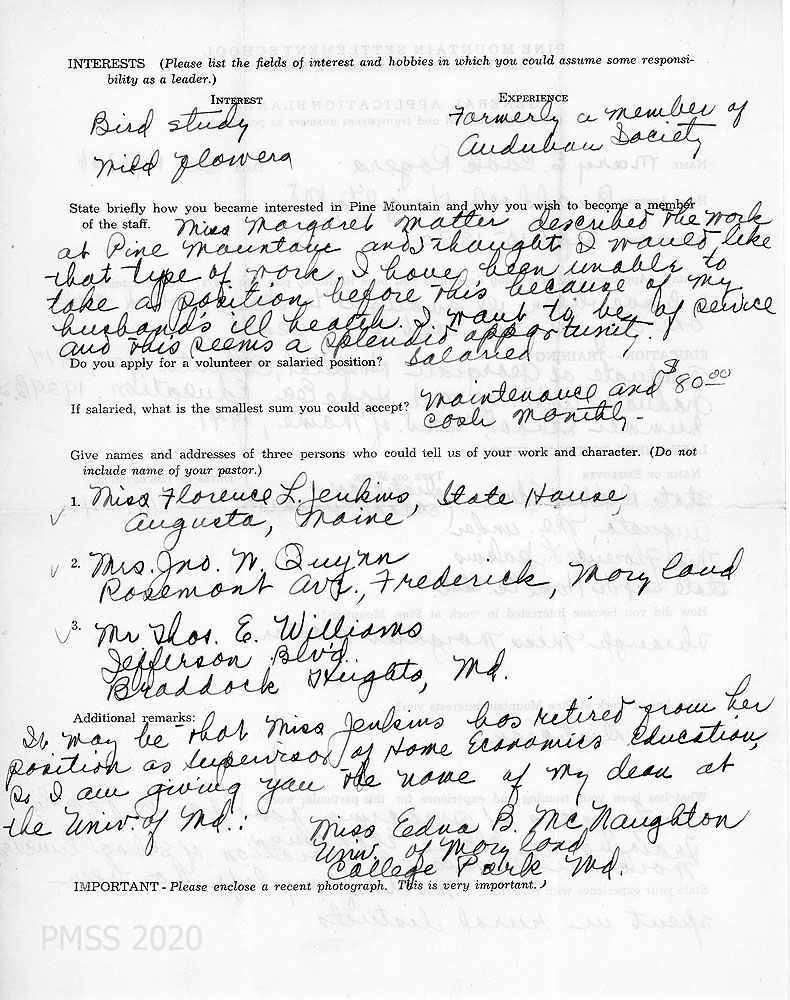 INTERESTS (Please list the fields of interest and hobbies in which you could assume some responsi-
bility as a leader.)
INTEREST EXPERIENCE
Bird study Formerly a member of
Wild flowers Audubon Society
State briefly how you became interested in Pine Mountain and why you wish to become a member
of the staff. Miss Margaret Motter described the work
at Pine Mountain and I thought I would like
that type of work. I have been unable to
take a position before this because of my
husband's ill health. I want to be of service
and this seems a splendid opportunity.
Do you apply for a volunteer or salaried position? Salaried
If salaried, what is the smallest sum you could accept? Maintenance and $80.00
cash monthly -
Give names and addresses of three persons who could tell us of your work and character. (Do not
include name of your pastor.)
1. Miss Florence L. Jenkins, State House,
Augusta, Maine
2. Mrs. Jno. W. Quynn
Rosemont Ave., Frederick, Maryland
3. Mr Thos. E. Williams
Jefferson Blv'd.
Braddock Heights, Md.
Additional remarks:
It may be that Miss Jenkins has retired from her
position as supervisor of Home Economics Education,
so I am giving you the name of my dean at
the Univ. of Md.: Miss Edna B. McNaughton
Univ. of Maryland
College Park Md.
IMPORTANT - Please enclose a recent photograph. This is very important.
PMSS 2020